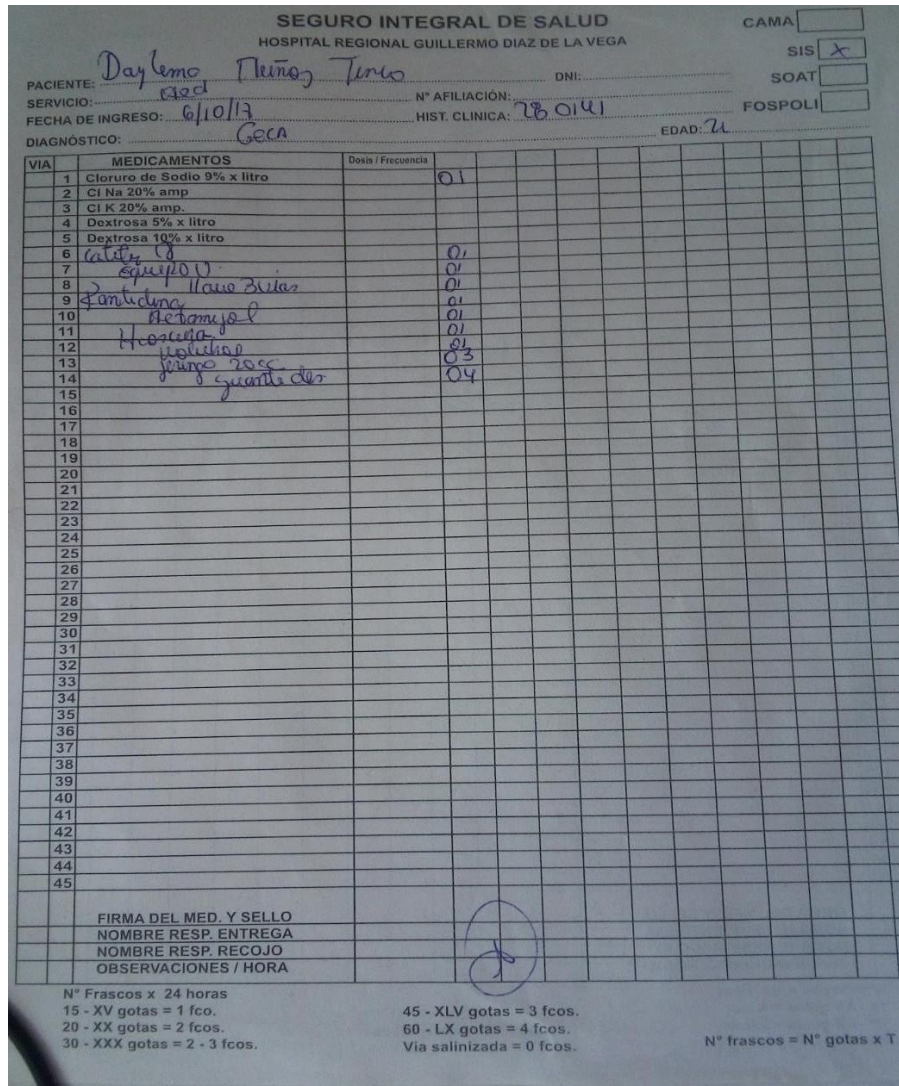 SEGURO INTEGRAL DE SALUD
HOSPITAL REGIONAL GUILLERMO DIAZ DE LA VEGA
CAMA
SIS X
SOAT
FOSPOLI
PACIENTE: Daylemo
DNI:
SERVICIO:
N° AFILIACIÓN:
FECHA DE INGRESO: 6/10/17
HIST. CLINICA: 280141
DIAGNÓSTICO: GECA
EDAD:
VIA MEDICAMENTOS Dosis / Frecuencia
1 Cloruro de Sodio 9% x litro 01
2 Cl Na 20% amp
3 Cl K 20% amp.
4 Dextrosa 5% x litro
5 Dextrosa 10% x litro
6 01
7 Equipo 01
8 Llave 01
9 01
10 01
11 01
12 01
13 20cc 03
14 guante 04
15
16
17
18
19
20
21
22
23
24
25
26
27
28
29
30
31
32
33
34
35
36
37
38
39
40
41
42
43
44
45
FIRMA DEL MED. Y SELLO
NOMBRE RESP. ENTREGA
NOMBRE RESP. RECOJO
OBSERVACIONES / HORA
N° Frascos x 24 horas
15 - XV gotas = 1 fco.
20 - XX gotas = 2 fcos.
30 - XXX gotas = 2 - 3 fcos.
45 - XLV gotas = 3 fcos.
60 - LX gotas = 4 fcos.
Via salinizada = 0 fcos.
N° frascos = N° gotas x T